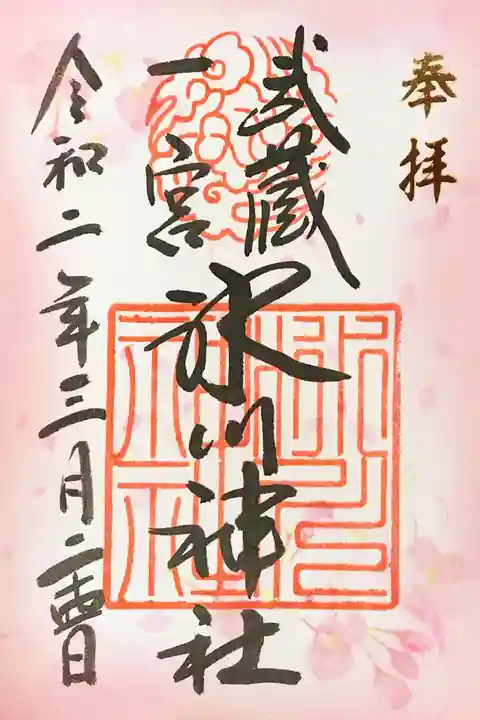 奉拝
武蔵
一宮
氷川神社
令和二年三月二十四日
氷川神社